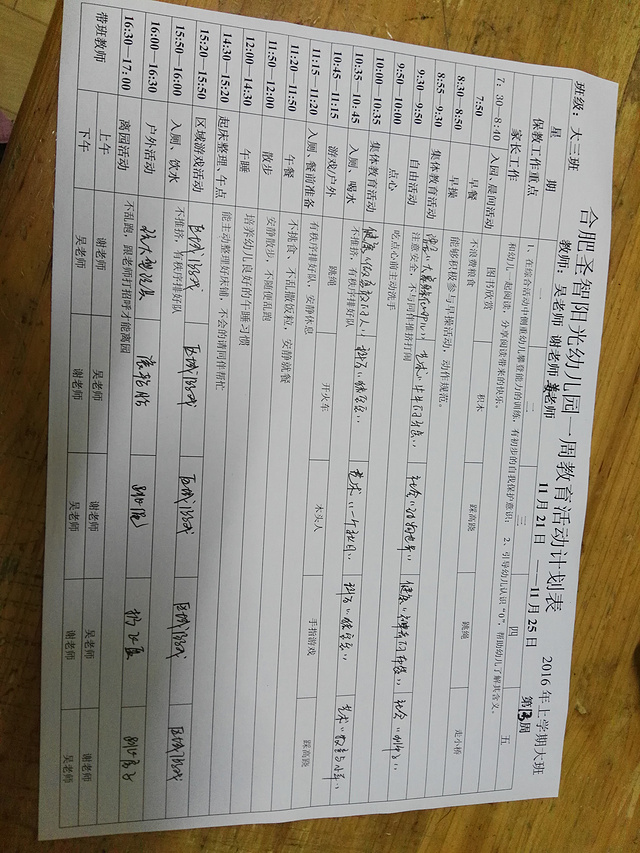 合肥圣智阳光幼儿园一周教育活动计划表
2016年上学期大班
班级：大三班
教师：吴老师 谢老师 姜老师
11月21日——11月25日
第13周
星期 一 二 三 四 五
保教工作重点 1、在综合活动中侧重幼儿攀登能力的训练，有初步的自我保护意识； 2、引导幼儿认识“0”，帮助幼儿了解其含义。
家长工作 和幼儿一起阅读，分享阅读带来的快乐。
7：30-8:40 入园/晨间活动 图书欣赏 积木 踩高跷 跳绳 走小桥
7:50 早餐 不浪费粮食
8:30—8:50 早操 能够积极参与早操活动，动作规范。
8:55—9:30 集体教育活动
9:30—9:50 自由活动 注意安全，不与同伴推挤打闹
9:50—10:00 点心 吃点心前主动洗手
10:00—10:35 集体教育活动
10:35—10:45 入厕、喝水 不推挤，有秩序排好队
10:45—11:15 游戏/户外 跳绳 开火车 木头人 手指游戏 踩高跷
11:15—11:20 入厕、餐前准备 有秩序排好队、安静休息
11:20—11:50 午餐 不挑食、不乱撒饭粒，安静就餐
11:50—12:00 散步 安静散步，不随便乱跑
12:00—14:30 午睡 培养幼儿良好的午睡习惯
14:30—15:20 起床整理、午点 能主动整理好床铺，不会的请同伴帮忙
15:20—15:50 区域游戏活动 区域游戏 区域游戏 区域游戏 区域游戏 区域游戏
15:50—16:00 入厕、饮水 不推挤，有秩序排好队
16:00—16:30 户外活动 滚轮胎
16:30—17：00 离园活动 不乱跑，跟老师打招呼才能离园
带班教师 上午 谢老师 吴老师 谢老师 吴老师 谢老师
下午 吴老师 谢老师 吴老师 谢老师 吴老师